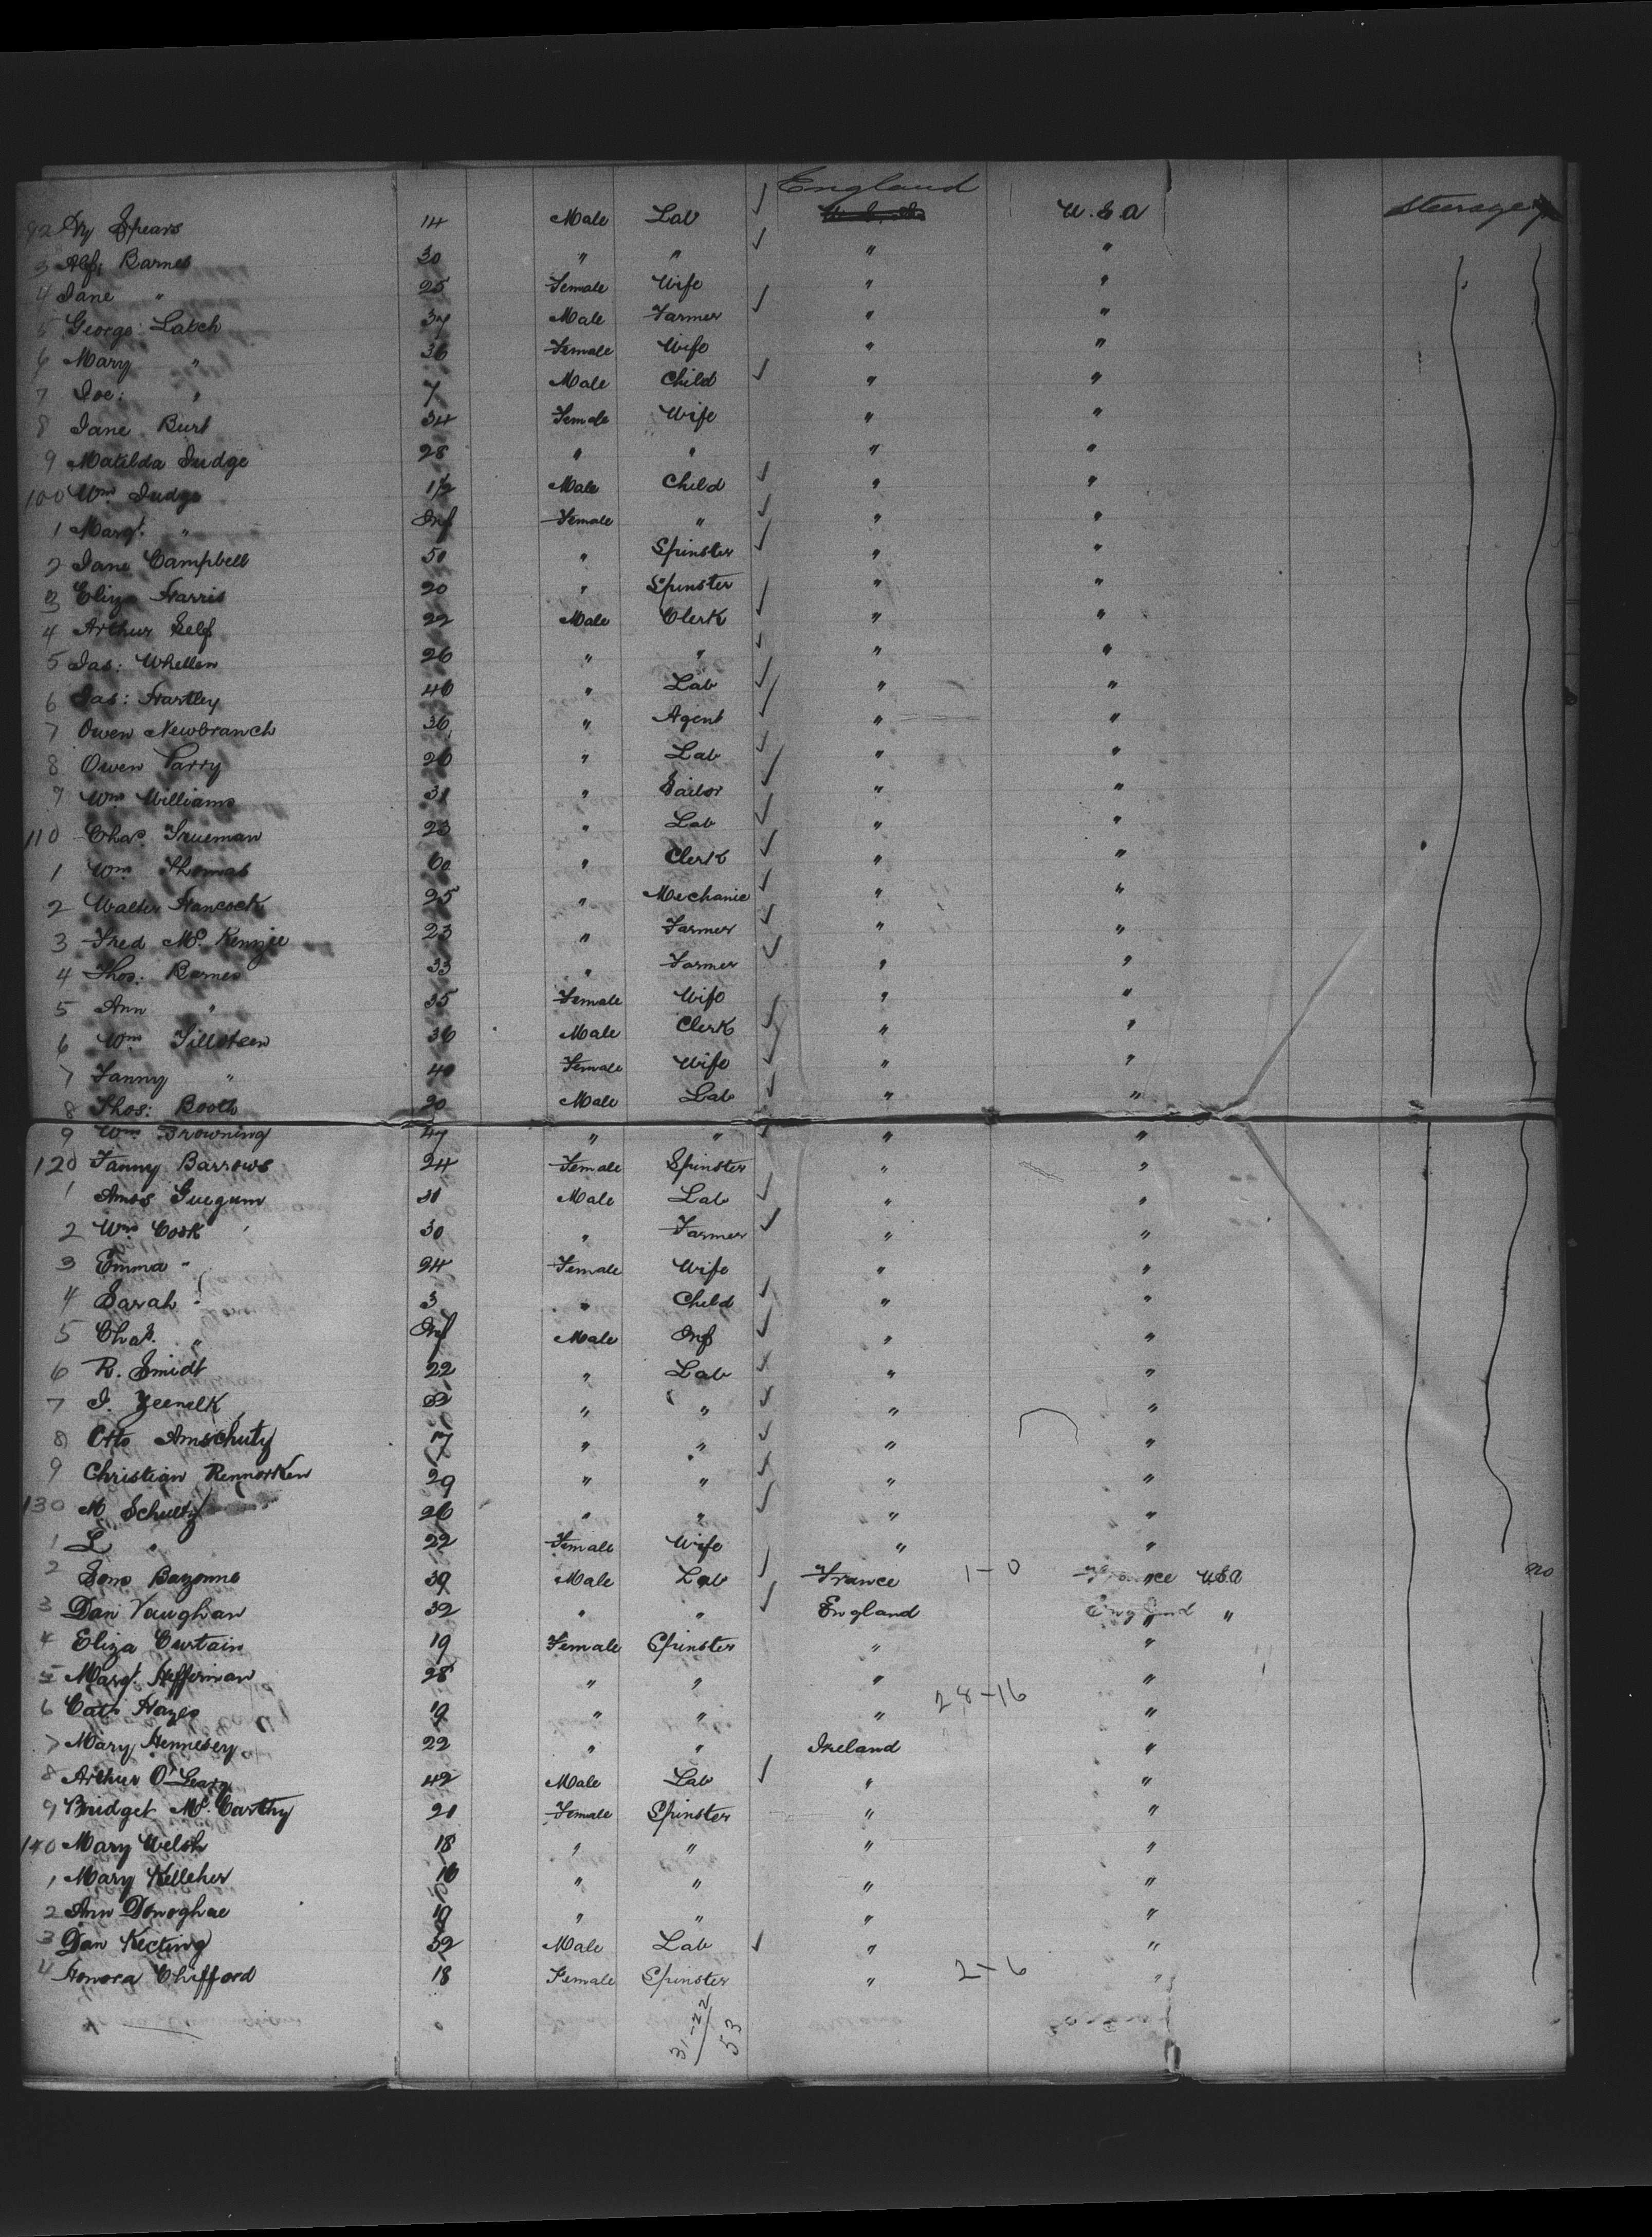 England
92 Hy Spears 14 Male Lab ✓ U.S.A Steerage
3 Alf: Barnes 30 " " ✓ " "
4 Jane " 25 Female Wife " "
5 George: Latch 37 Male Farmer ✓ " "
6 Mary " 36 Female Wife " "
7 Joe: " 7 Male Child ✓ " "
8 Jane Burt 34 Female Wife " "
9 Matilda Judge 28 " " " "
100 Wm Judge 1/2 Male Child ✓ " "
1 Margt. " Inf Female " ✓ " "
2 Jane Campbell 50 " Spinster ✓ " "
3 Eliza Harris 20 " Spinster " "
4 Arthur Self 22 Male Clerk ✓ " "
5 Jas: Whellen 26 " " ✓ " "
6 Jas: Hartley 40 " Lab ✓ " "
7 Owen Newbranch 36 " Agent ✓ " "
8 Owen Parry 26 " Lab ✓ " "
9 Wm Williams 31 " Sailor ✓ " "
110 Chas. Trueman 23 " Lab ✓ " "
1 Wm Thomas 60 " Clerk ✓ " "
2 Walter Hancock 25 " Mechanic ✓ " "
3 Fred Mc. Kenzie 23 " Farmer ✓ " "
4 Thos: Barnes 33 " Farmer ✓ " "
5 Ann " 35 Female Wife " "
6 Wm Tillsteen 36 Male Clerk ✓ " "
7 Fanny " 40 Female Wife ✓ " "
8 Thos: Booth 20 Male Lab ✓ " "
9 Wm Browning 47 " " ✓ " "
120 Fanny Barrows 24 Female Spinster " "
1 Amos Guegum 31 Male Lab ✓ " "
2 Wm Cook 30 " Farmer ✓ " "
3 Emma " 24 Female Wife " "
4 Sarah " 3 " Child ✓ " "
5 Chas. " Inf Male Inf ✓ " "
6 R. Smidt 22 " Lab ✓ " "
7 J. Zeenelk " " ✓ " "
8 Otto Amschutz 17 " " ✓ " "
9 Christian Rennorken 29 " " ✓ " "
130 M. Schultz 26 " " ✓ " "
1 L " 22 Female Wife " "
2 Bayonne 39 Male Lab ✓ France 1-0 France U.S.A 20
3 Dan Vaughan 32 " " ✓ England England "
4 Eliza Curtain 19 Female Spinster " "
5 Margt. Hefferinan 28 " " " "
6 Cath Hayes 19 " " " 28-16 "
7 Mary Hennesey 22 " " Ireland "
8 Arthur O'Leary 42 Male Lab ✓ " "
9 Bridget Mc. Carthy 21 Female Spinster " "
140 Mary Welsh 18 " " " "
1 Mary Kelleher 16 " " " "
2 Ann Donoghue 19 " " " "
3 Dan Kecting 32 Male Lab ✓ " "
4 Honora Chifford 18 Female Spinster " 2-6 "
31-22
53